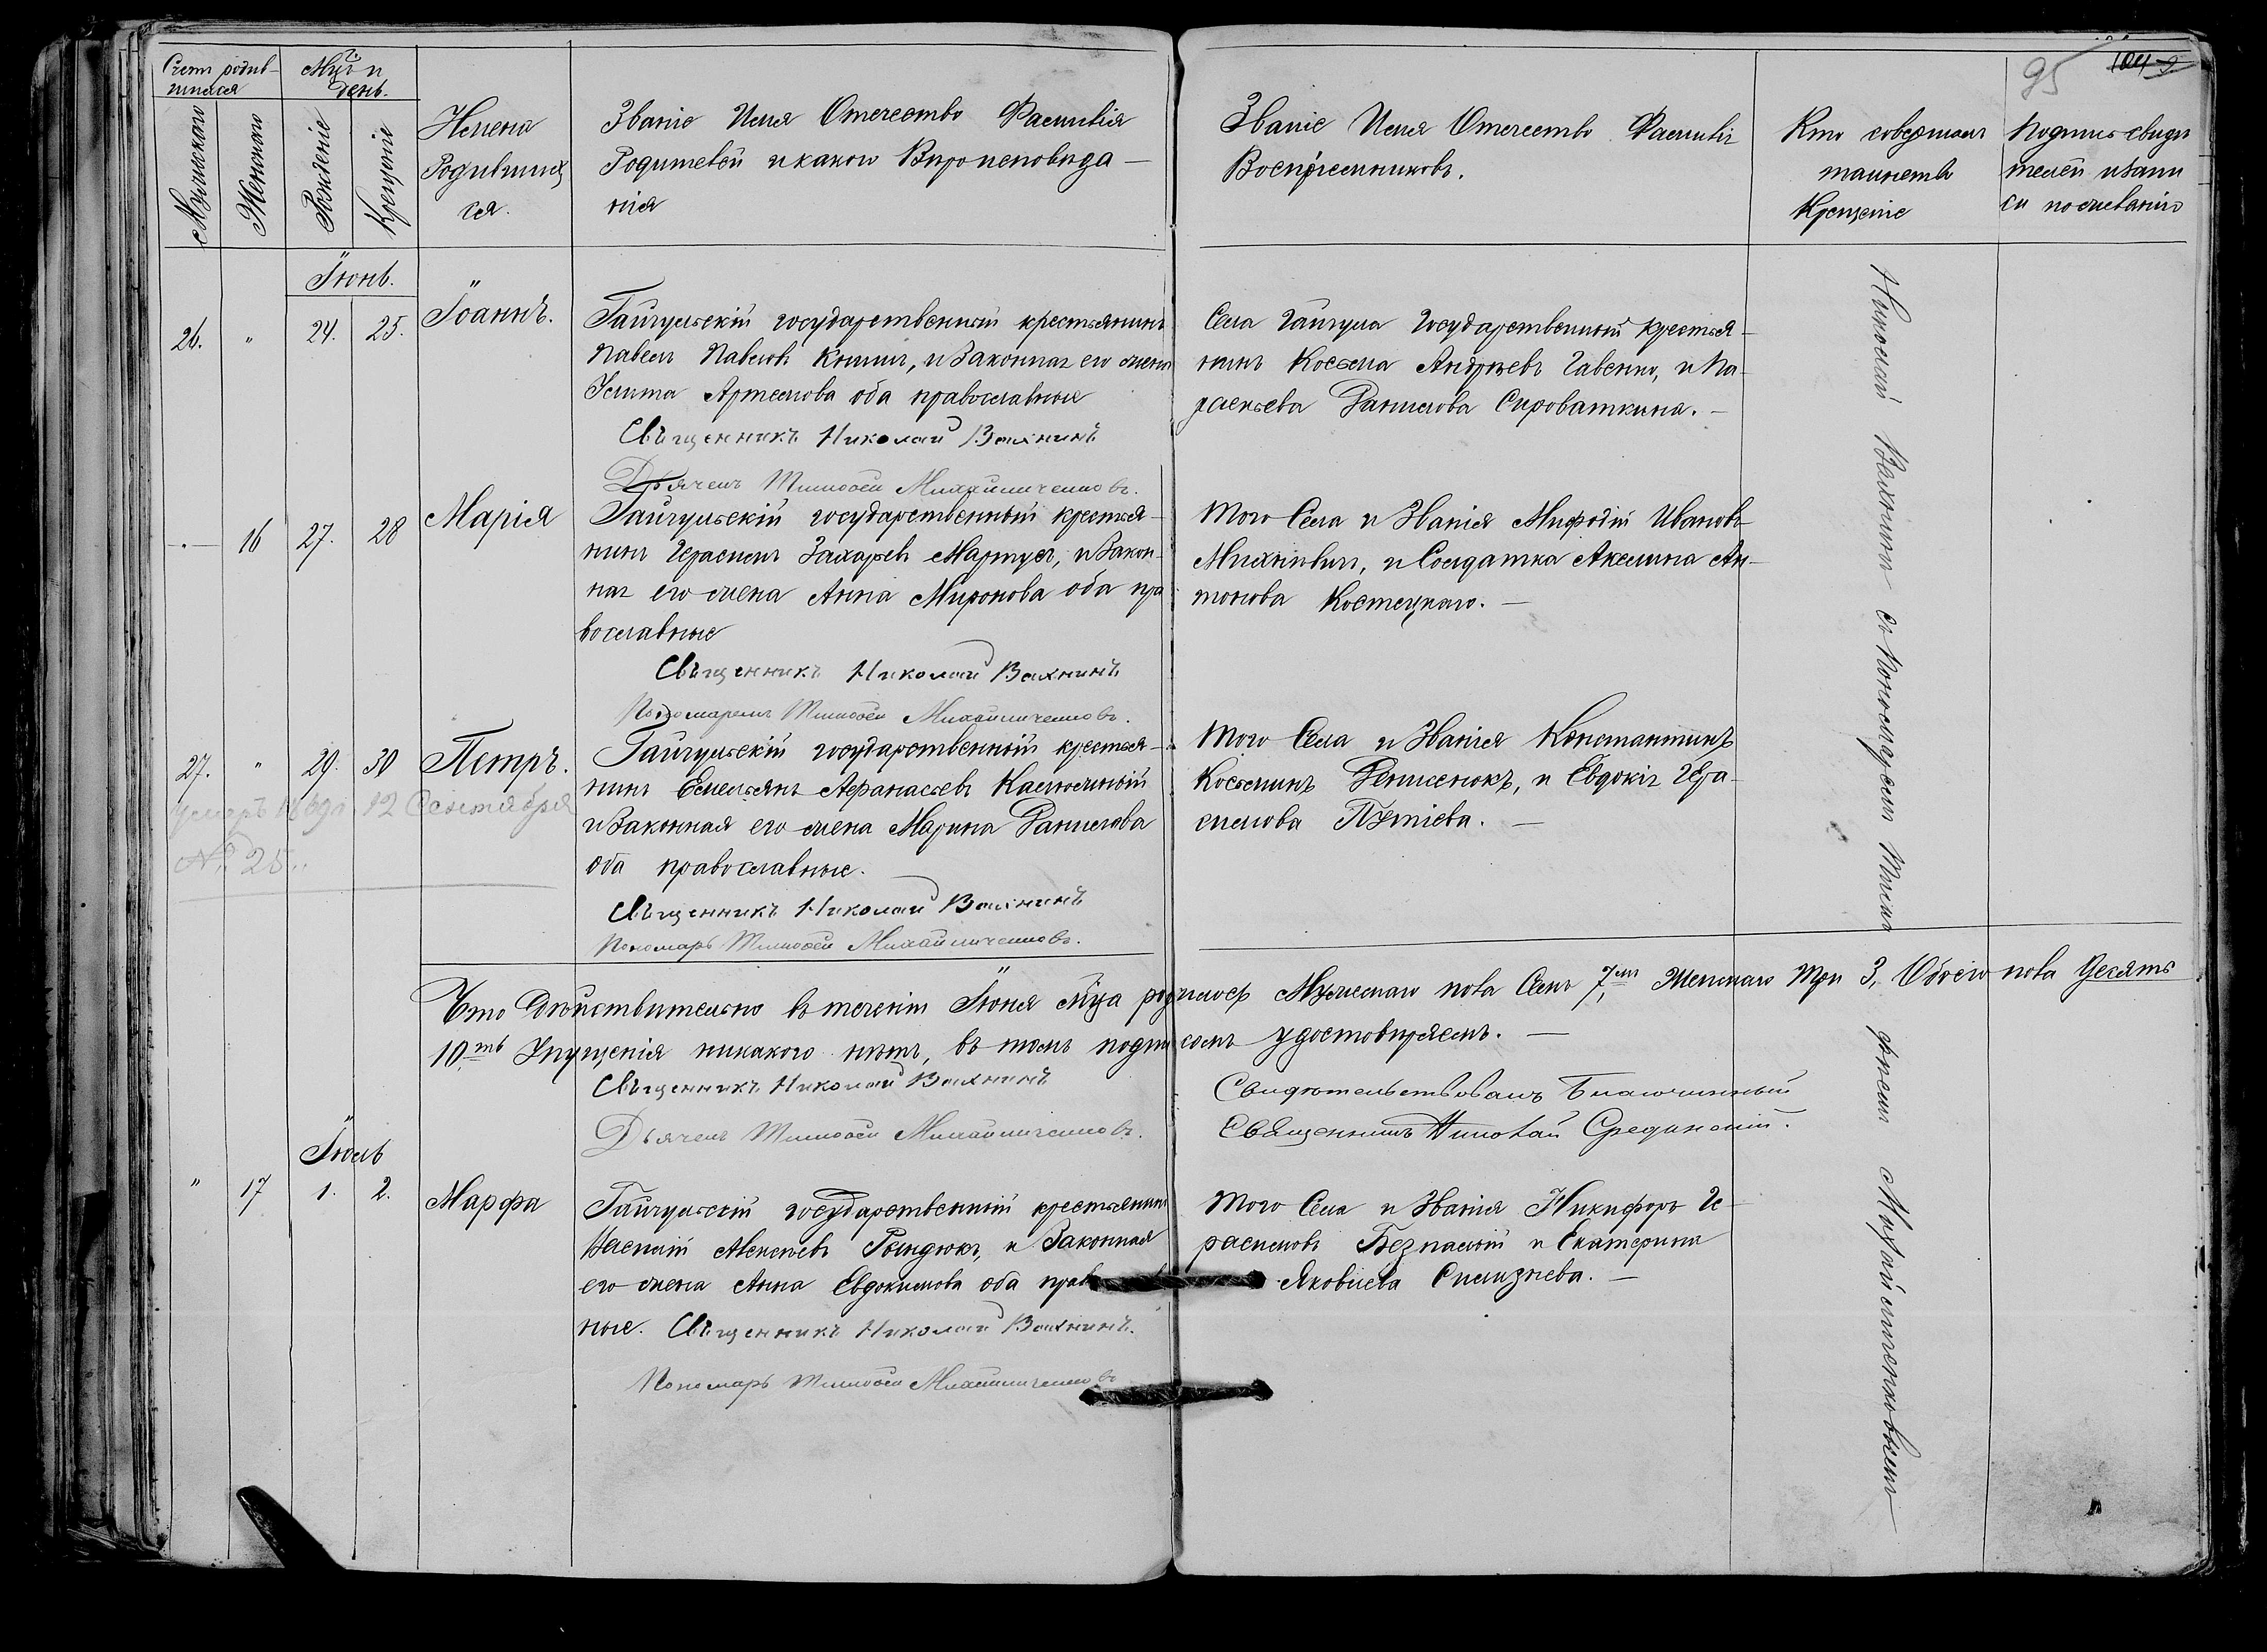 95
Счетъ родив-
шихся
Мц̃ъ и
день.
Мужескаго
Женскаго
Рожденіе
Крещеніе
Имена
Родивших
ся.
Званіе Имя Отечество Фамилія
Родителей и какого Вѣроисповѣда—
нія
Званіе Имя Отечество Фамилія
Воспріемниковъ.
Кто совершалъ
таинство
Крещеніе
Подпись свидѣ
телей и запи
си по желанію
Іюнь.
26. " 24. 25. Іоаннъ.
Гайчульскій государственный крестьянинъ
Павелъ Павловъ и Законная его жена
Артемова оба православные
Священникъ Николай Вахнинъ
Дьячекъ Тимофей Михайличенковъ.
Села Гайчула Государственный крестья—
нинъ Косьма Андреевъ Гавенко, и Па-
раскева Данилова Сироваткина.—
— 16 27. 28 Марія
Гайчульскій государственный крестья—
нинъ Герасимъ Захарьевъ Мартусъ, и Закон-
ная его жена Анна Миронова оба пра
вославные
Священникъ Николай Вахнинъ
Пономарь Тимофей Михайличенковъ.
Того Села и Званія Мифодій Ивановъ
Михневичъ, и Солдатка Акелина Ан—
тонова Костецкаго.—
27. " 29. 30 Петръ.
умеръ 12 Сентября
№ 25.
Гайчульскій государственный крестья—
нинъ Емельянъ Афанасьевъ
и Законная его жена Марина Данилова
оба православные.
Священникъ Николай Вахнинъ
Пономарь Тимофей Михайличенковъ.
Того Села и Званія Константинъ
Косьминъ Денисенокъ, и Евдокія Гера-
симова —
Что Дѣйствительно въ теченіи Іюня мц̃а родилось Мужескаго пола Семь 7мь, Женскаго Три 3, Обоего пола Десять
10.ть Упущенія никакого нѣтъ, въ томъ подписомъ удостовѣряемъ.—
Священникъ Николай Вахнинъ
Дьячекъ Тимофей Михайличенковъ.
Свидѣтельствовалъ Благочинный
Священникъ Николай Срединскій.
Іюль
" 17 1. 2. Марфа
Гайчульскій государственный крестьянинъ
Алексѣевъ Рындюкъ, и Законная
его жена Анна Евдокимова оба прав
ные. Священникъ Николай Вахнинъ.
Пономарь Тимофей Михайличенковъ
Того Села и Званія Никифоръ Ге-
расимовъ Безпалый и Екатерина
Яковлева —
Николай Вахнинъ съ Пономаремъ Тимо
фѣемъ Михайличенковымъ